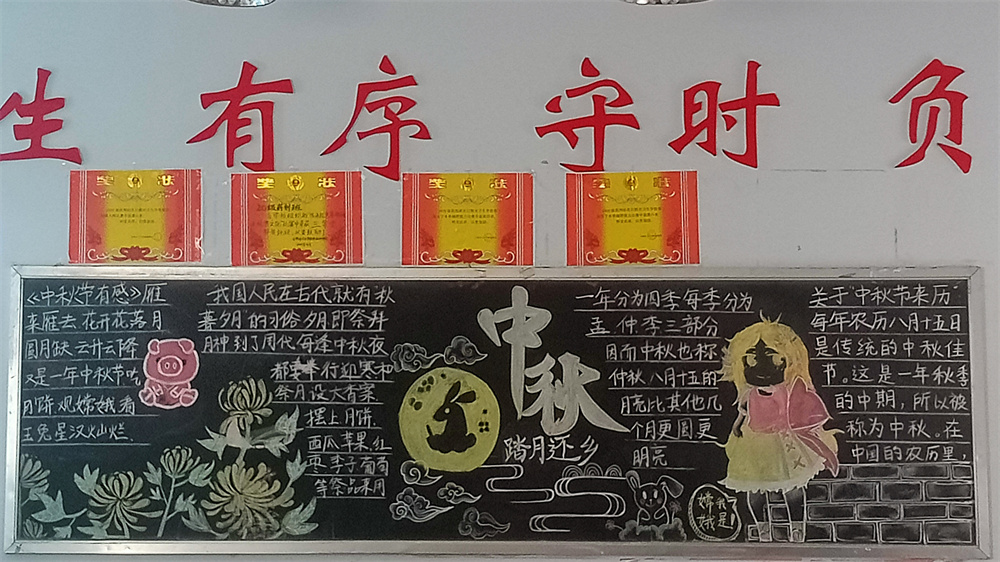 生 有序 守时 负
奖状
奖状
奖状
奖状
《中秋节有感》雁
来雁去花开花落月
圆月缺云开云降
又是一年中秋节吃
月饼观嫦娥看
玉兔星汉灿烂
我国人民在古代就有秋
暮夕月"的习俗夕月即祭拜
月神到了周代每逢中秋夜
都举行迎寒和
祭月设大香案
摆上月饼
西瓜苹果红
枣李子葡萄
等祭品
中秋
踏月还乡
一年分为四季每季分为
孟仲季三部分
因而中秋也称
仲秋八月十五的
月亮比其他几
个月更圆更
明亮
嫦娥
我是
关于"中秋节来历"
每年农历八月十五日
是传统的中秋佳
节。这是一年秋季
的中期，所以被
称为中秋。在
中国的农历里，